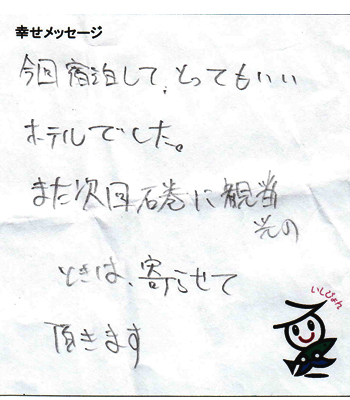 幸せメッセージ
今回宿泊して、とってもいい
ホテルでした。
また次回石巻に観光
その
ときは、寄らせて
頂きます
いしぴょん